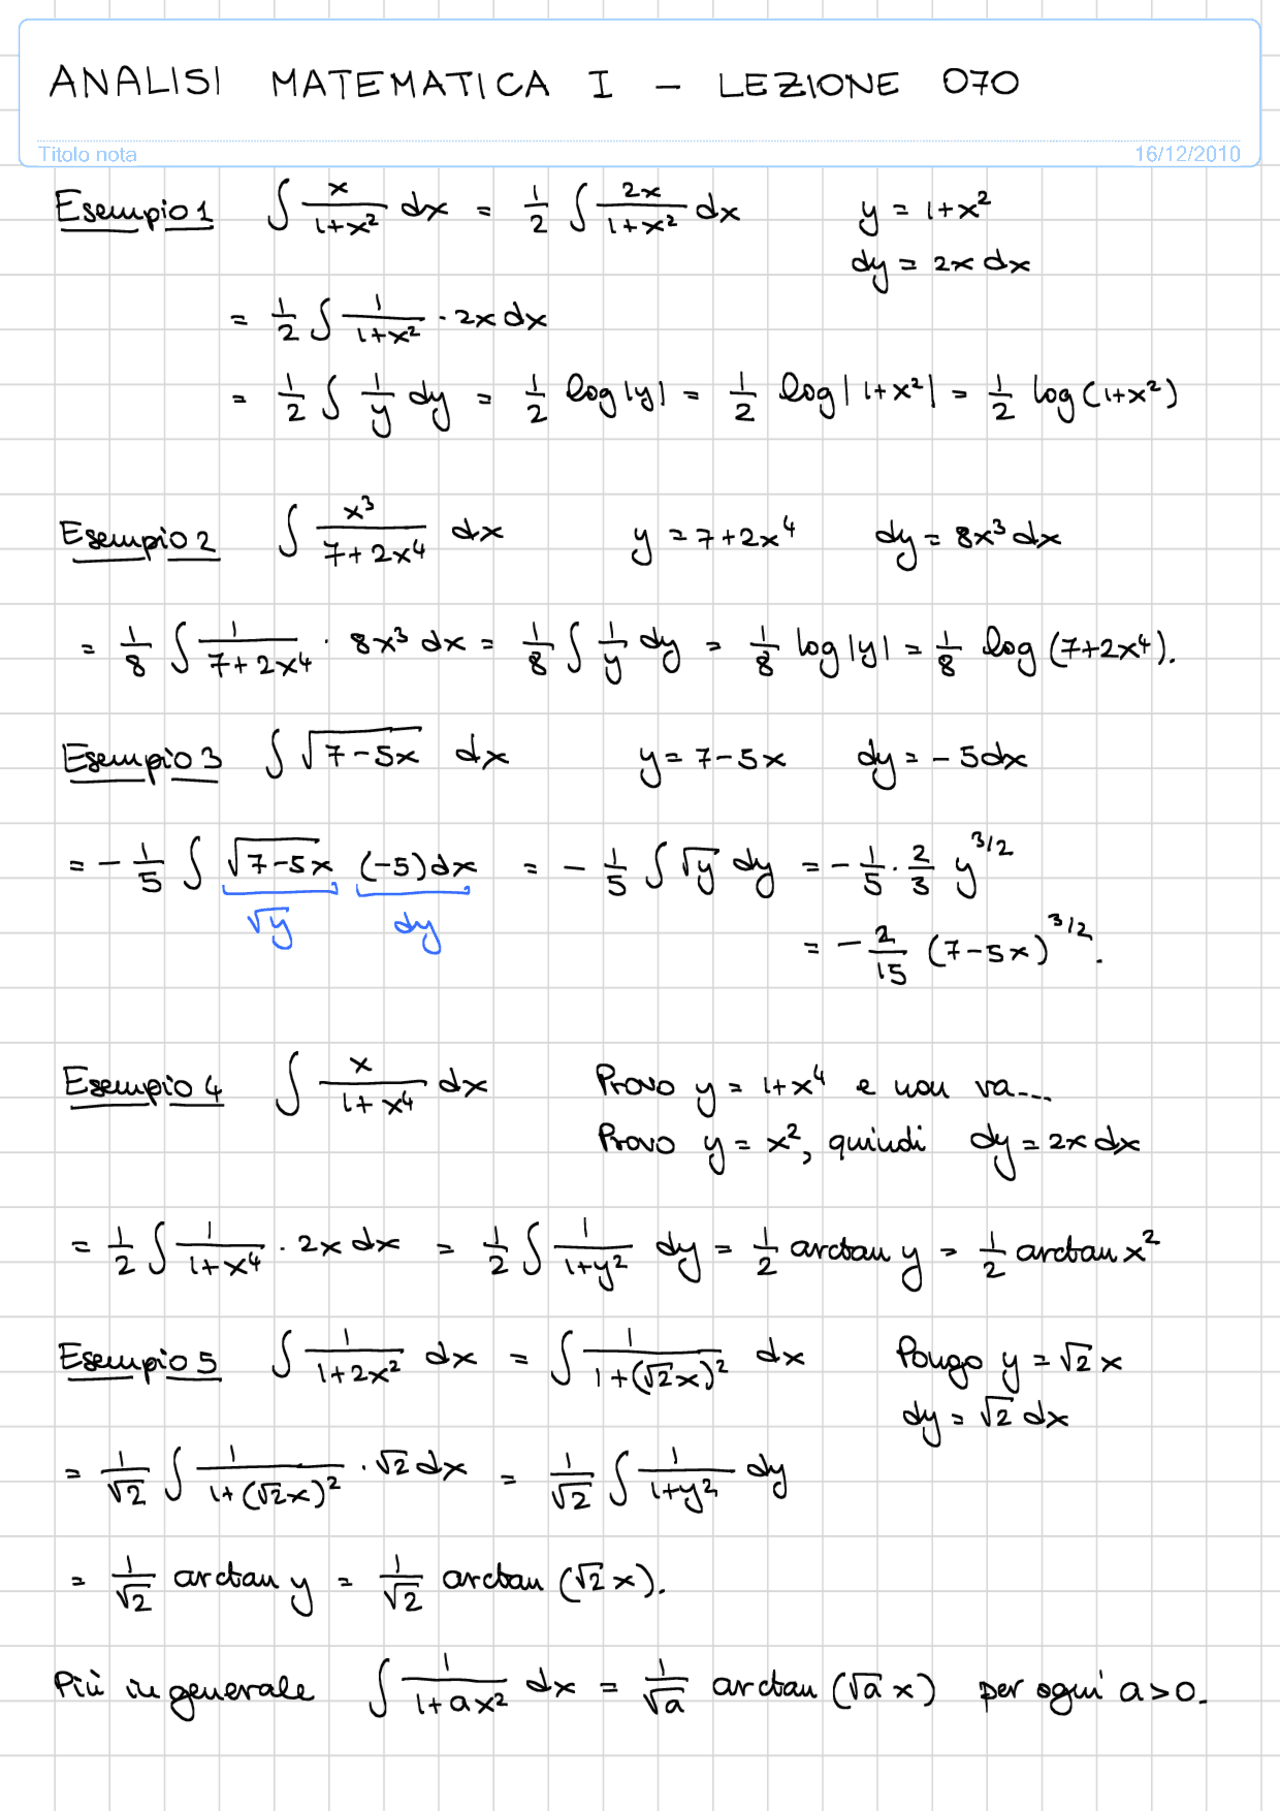 ANALISI MATEMATICA I – LEZIONE 070
Titolo nota 16/12/2010
Esempio 1 ∫ x/(1+x²) dx = 1/2 ∫ 2x/(1+x²) dx y = 1+x²
dy = 2x dx
= 1/2 ∫ 1/(1+x²) · 2x dx
= 1/2 ∫ 1/y dy = 1/2 log|y| = 1/2 log|1+x²| = 1/2 log(1+x²)
Esempio 2 ∫ x³/(7+2x⁴) dx y = 7+2x⁴ dy = 8x³ dx
= 1/8 ∫ 1/(7+2x⁴) · 8x³ dx = 1/8 ∫ 1/y dy = 1/8 log|y| = 1/8 log(7+2x⁴).
Esempio 3 ∫ √(7-5x) dx y = 7-5x dy = -5dx
= -1/5 ∫ √(7-5x) (-5)dx = -1/5 ∫ √y dy = -1/5 · 2/3 y^(3/2)
√y dy
= -2/15 (7-5x)^(3/2).
Esempio 4 ∫ x/(1+x⁴) dx Provo y = 1+x⁴ e non va...
Provo y = x², quindi dy = 2x dx
= 1/2 ∫ 1/(1+x⁴) · 2x dx = 1/2 ∫ 1/(1+y²) dy = 1/2 arctan y = 1/2 arctan x²
Esempio 5 ∫ 1/(1+2x²) dx = ∫ 1/(1+(√2x)²) dx Pongo y = √2 x
dy = √2 dx
= 1/√2 ∫ 1/(1+(√2x)²) · √2 dx = 1/√2 ∫ 1/(1+y²) dy
= 1/√2 arctan y = 1/√2 arctan (√2 x).
Più in generale ∫ 1/(1+ax²) dx = 1/√a arctan (√a x) per ogni a>0.